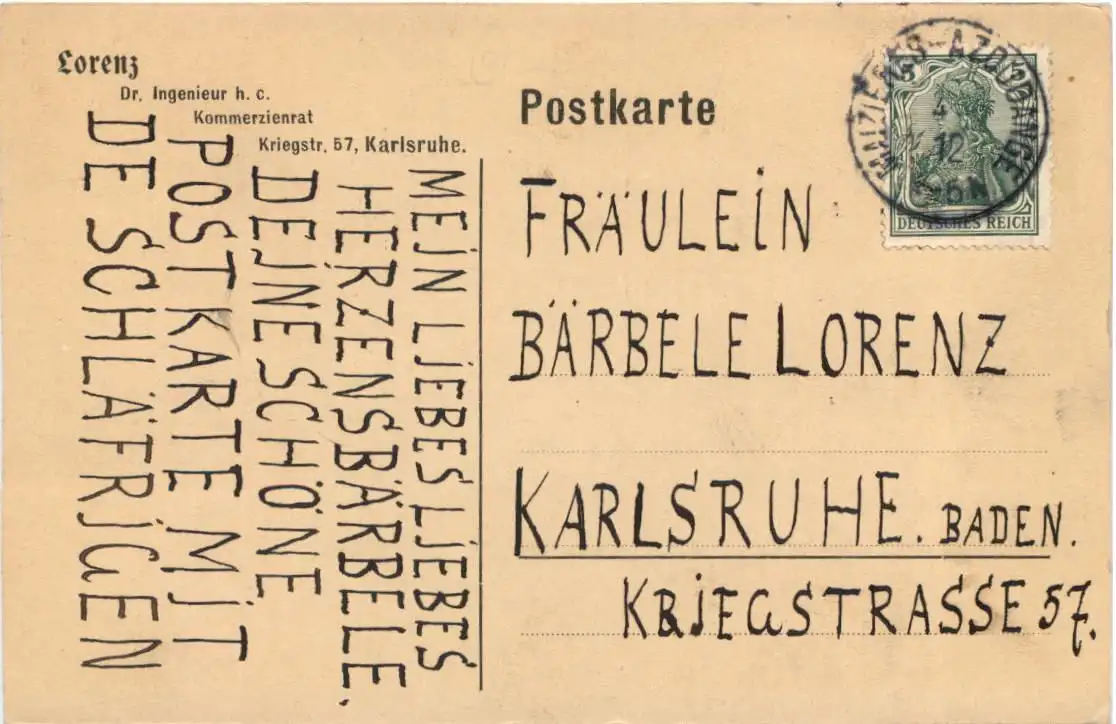 Lorenz
Dr. Ingenieur h. c.
Kommerzienrat
Kriegstr. 57, Karlsruhe.
MEiN LjEBES LjEBES
HERZENSBÄRBELE.
DEJNE SCHÖNE
POSTKARTE MiT
DE SCHLÄFRjGEN
Postkarte
AZOUDANGE
4
12
6N
DEUTSCHES REICH
FRÄULEiN
BÄRBELE LORENZ
KARLSRUHE. BADEN.
KRjEGSTRASSE 57.